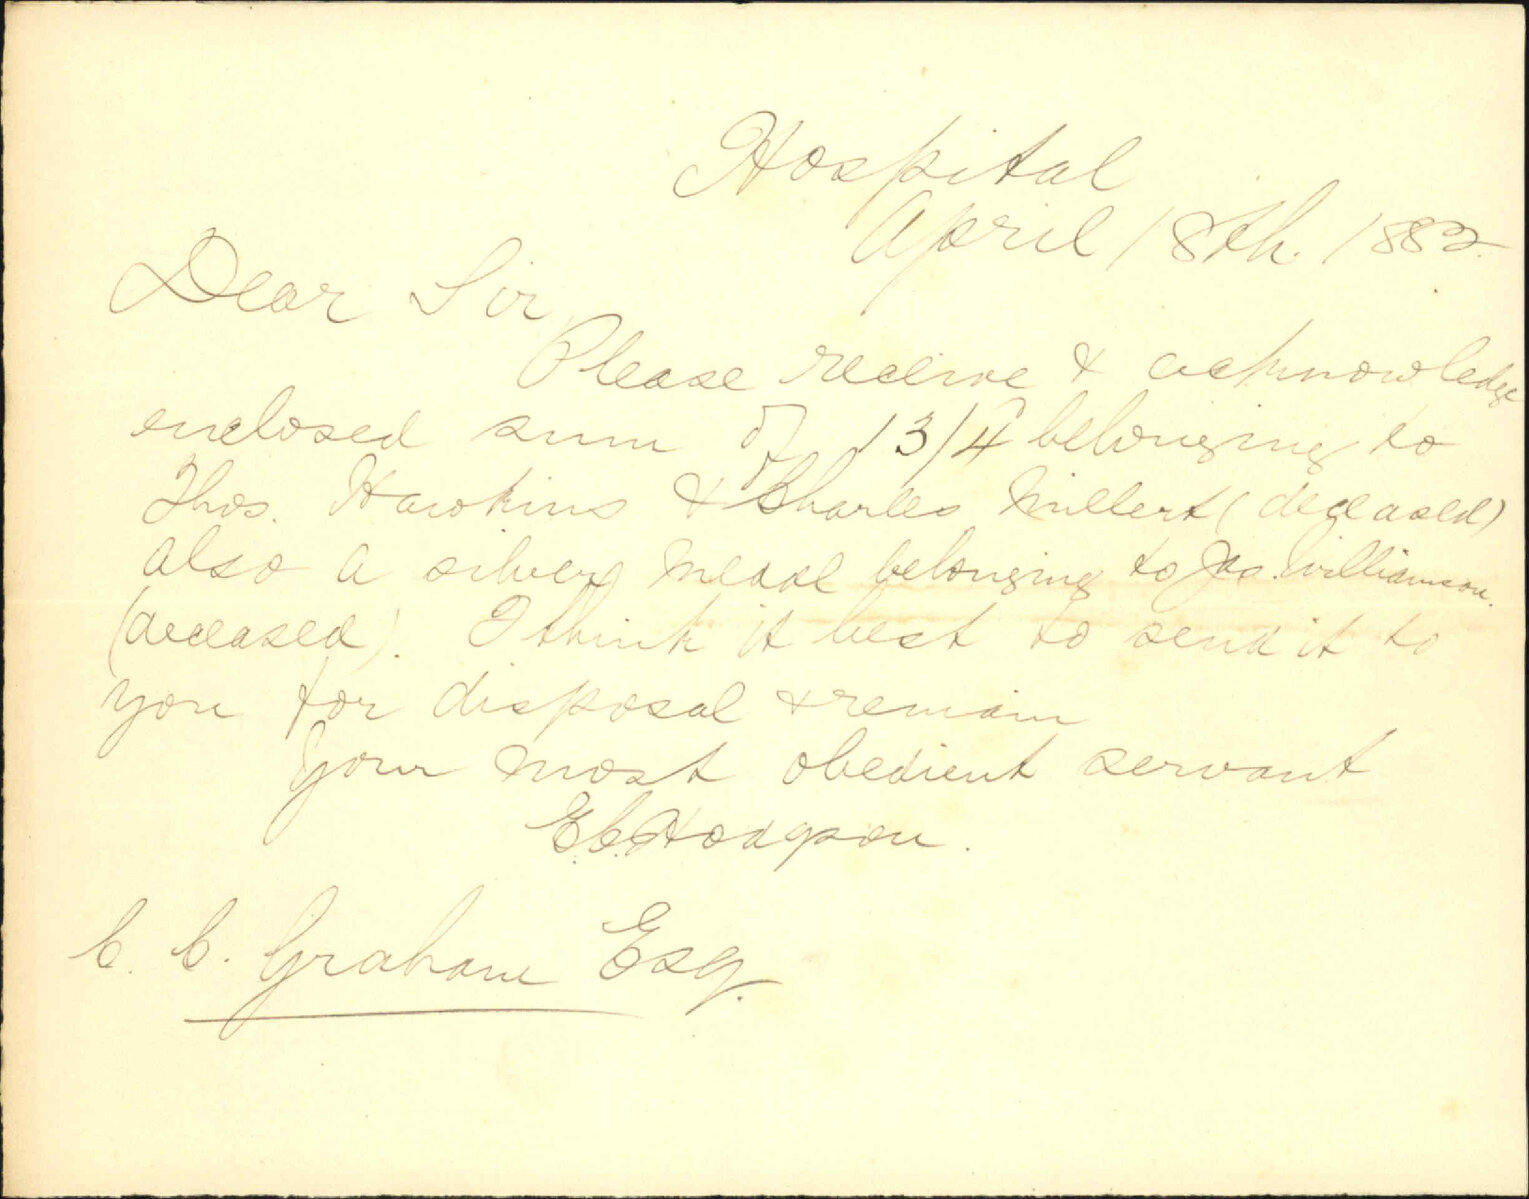 Hospital
April 18th. 1882.
Dear Sir,
Please receive & acknowledge
enclosed sum of 13/4 belonging to
Thos. Hawkins & Charles Millert (deceased)
also a silver medal belonging to Jas. Williamson.
(deceased). I think it best to send it to
you for disposal & remain
Your most obedient servant
E.C. Hodgson.
C. C. Graham Esq.